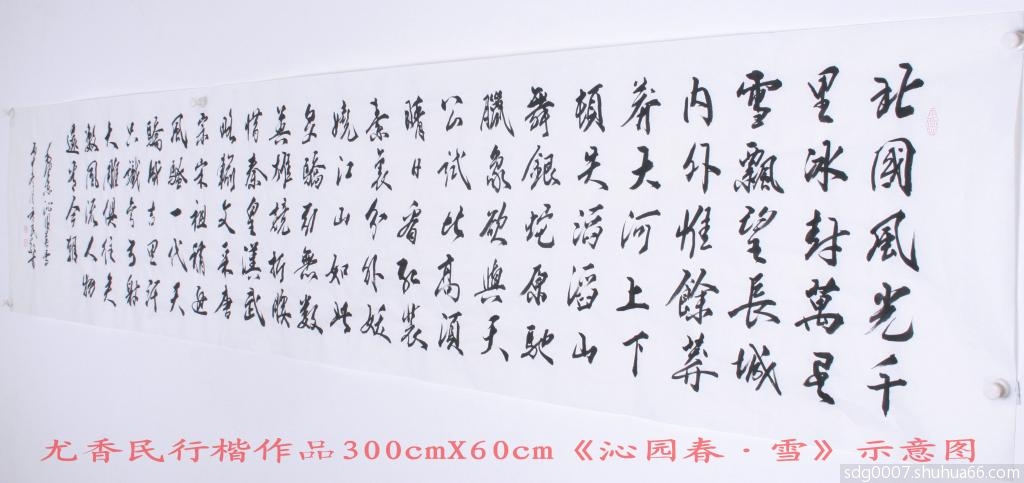 北國風光千
里冰封萬里
雪飄望長城
內外惟餘莽
莽大河上下
頓失滔滔山
舞銀蛇原馳
臘象欲與天
公試比高須
晴日看紅裝
素裹分外妖
嬈江山如此
多驕引無數
英雄競折腰
惜秦皇漢武
略輸文采唐
宋宋祖稍遜
風騷一代天
驕成吉思汗
只識彎弓射
大雕俱往矣
數風流人物
還看今朝
沁園春雪
尤香民行楷作品300cmX60cm《沁园春·雪》示意图
sdg0007.shuhua66.com